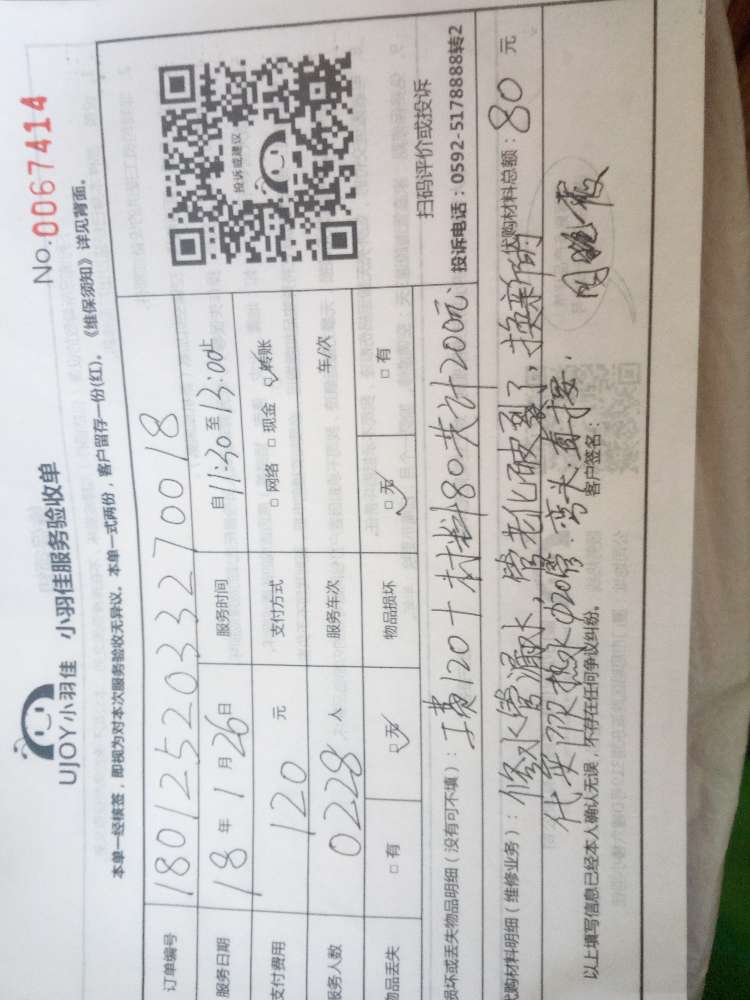 UJOY小羽佳 小羽佳服务验收单
No.0067414
本单一经核签，即视为对本次服务验收无异议。本单一式两份，客户留存一份(红)。《维保须知》详见背面。
订单编号 180125203327001 8
服务日期 18年1月26日 服务时间 自11:30至13:00止
支付费用 120 元 支付方式 □网络 □现金 ☑转账
服务人数 0228 人 服务车次 车/次
物品丢失 □有 ☑无 物品损坏 ☑无 □有
投诉或建议
扫码评价或投诉
投诉电话：0592-5178888转2
损坏或丢失物品明细（没有可不填）：工费120+材料80共计200元
代购材料明细（维修业务）：修水管漏水，管老化破裂了，换新的 代购材料总额：80 元
代买 热水 管 弯头.直接.
以上填写信息已经本人确认无误，不存在任何争议纠纷。 客户签名：